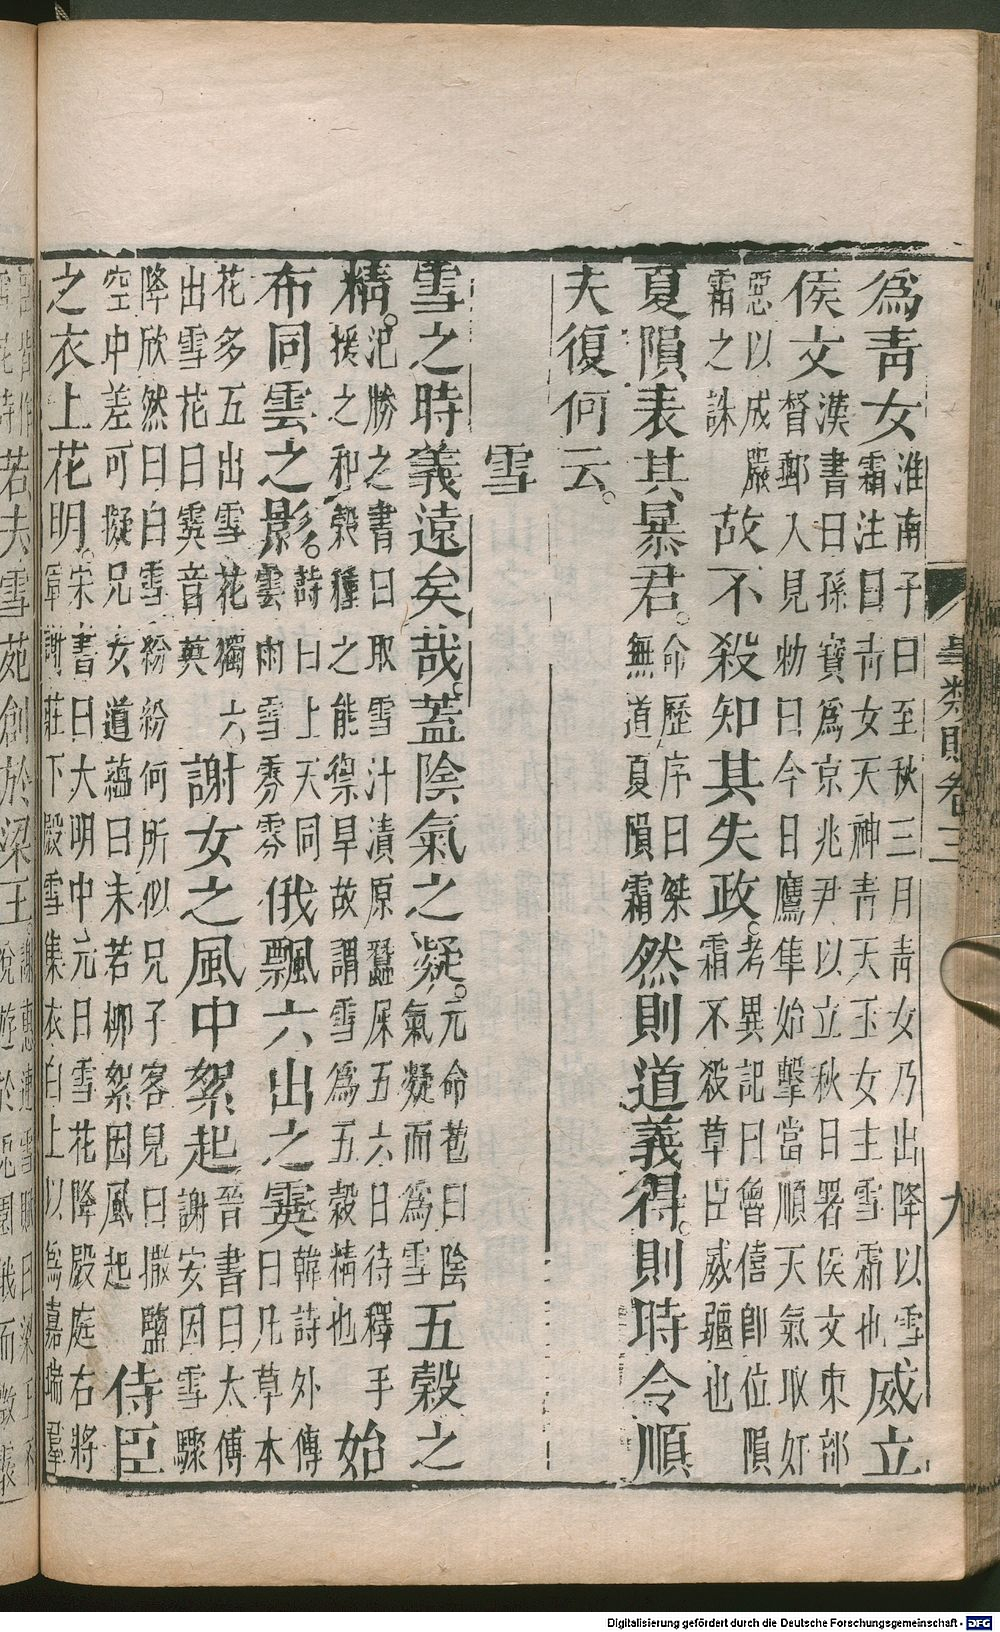 為青女淮南子曰至秋三月青女乃出降以雪
霜注曰青女天神青天玉女主雪霜也威立
侯文漢書曰孫寶為京兆尹以立秋日署侯文東部
督郵入見勑曰今日鷹隼始擊當順天氣取奸
惡以成嚴
霜之誅故不殺知其失政考異記曰魯僖即位隕
霜不殺草臣威彊也
夏隕表其暴君命歷序曰桀
無道夏隕霜然則道義得則時令順
夫復何云
雪
雪之時義遠矣哉蓋陰氣之凝元命苞曰陰
氣凝而為雪五穀之
精汜勝之書曰取雪汁漬原蠶屎五六日待釋手
援之和穀種之能禦旱故謂雪為五穀精也始
布同雲之影詩曰上天同
雲雨雪雰雰俄飄六出之霙韓詩外傳
曰凡草木
花多五出雪花獨六
出雪花曰霙音英謝女之風中絮起晉書曰太傅
謝安因雪驟
降欣然曰白雪紛紛何所似兄子客兒曰撒鹽
空中差可擬兄女道蘊曰未若柳絮因風起侍臣
之衣上花明宋書曰大明中元日雪花降殿庭右將
軍謝莊下殿雪集衣白上以為嘉瑞羣
若夫雪苑創於梁王謝惠連雪賦曰梁王不
悅遊於兎園俄而微霰
彙類賦卷三
九
Digitalisierung gefördert durch die Deutsche Forschungsgemeinschaft - DFG